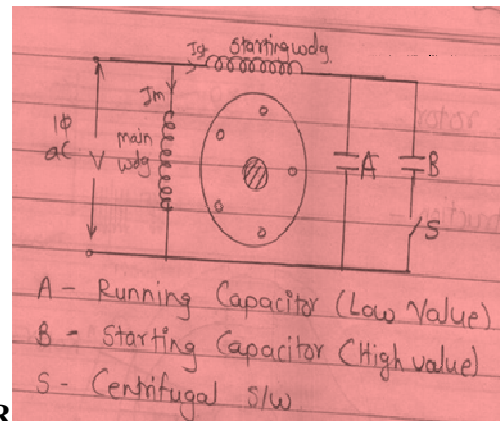 Starting wdg.
Ist
Im
1ϕ
ac
V
main
wdg
A
B
S
A - Running Capacitor (Low Value)
B - Starting Capacitor (High value)
S - Centrifugal S/W
R